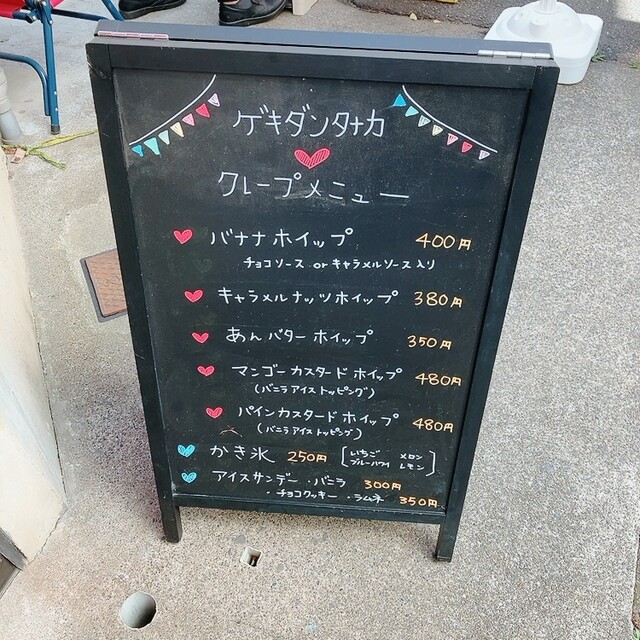 ゲキダンタナカ
クレープメニュー
バナナホイップ 400円
チョコソース or キャラメルソース入り
キャラメルナッツホイップ 380円
あんバターホイップ 350円
マンゴーカスタードホイップ 480円
(バニラアイストッピング)
パインカスタードホイップ 480円
(バニラアイストッピング)
かき氷 250円 [いちご メロン
ブルーハワイ レモン]
アイスサンデー・バニラ 300円
・チョコクッキー ・ラムネ 350円